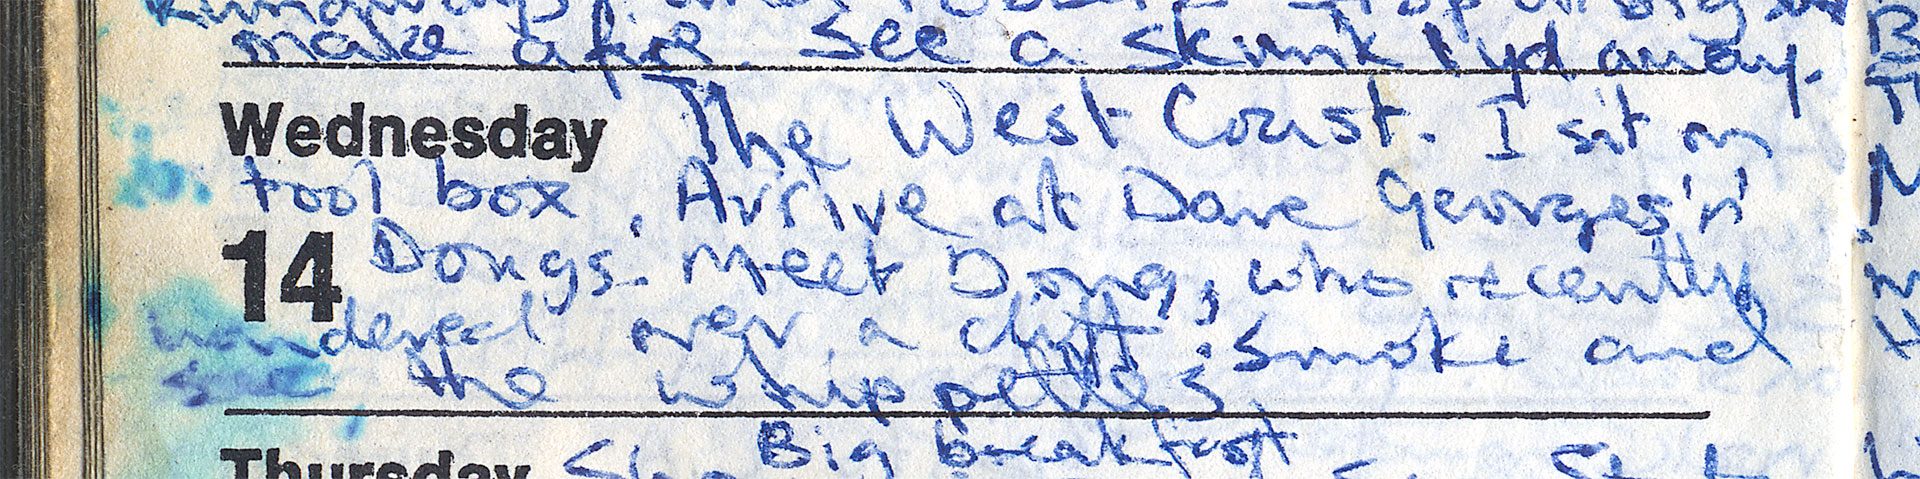 make a fire. See a skunk 1 yd. away.
Wednesday The West Coast. I sit on
tool box. Arrive at Dave Georges 'n'
14 Dougs. Meet Doug, who recently
wandered over a cliff. Smoke and
see the whippettes.
Big breakfast
Thursday